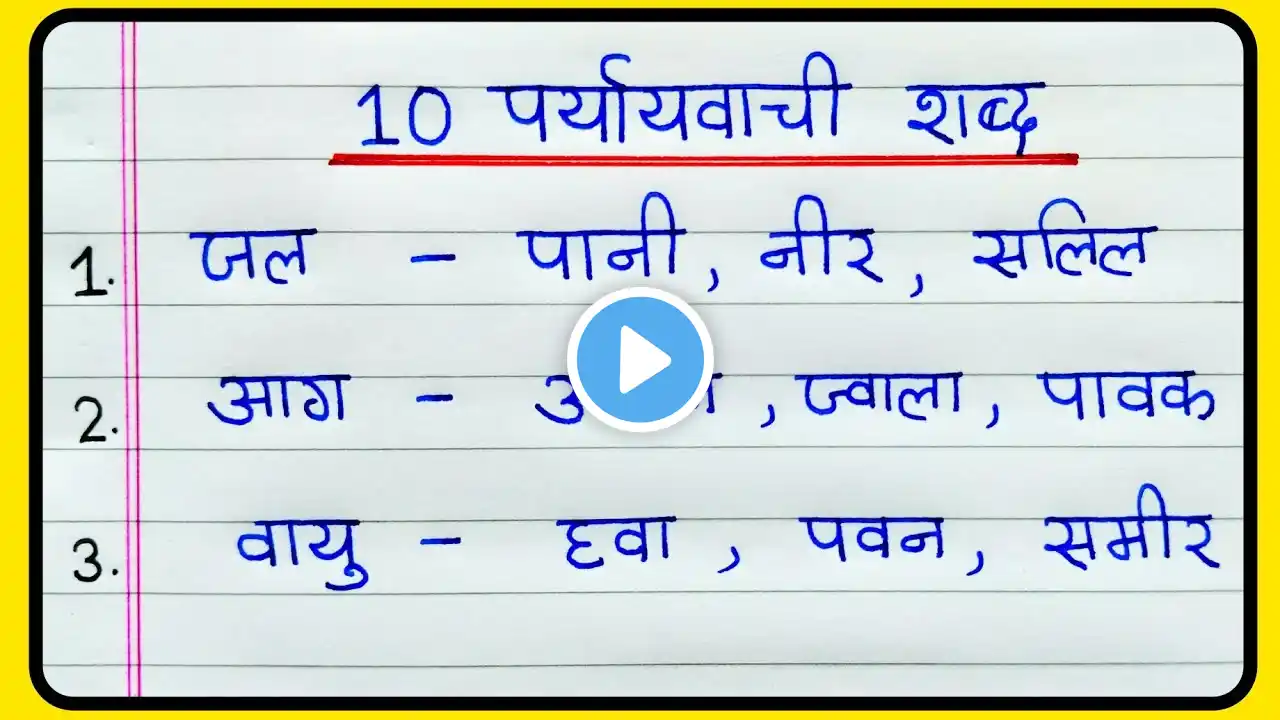 10 पर्यायवाची शब्द
1. जल - पानी, नीर, सलिल
2. आग - , ज्वाला, पावक
3. वायु - हवा, पवन, समीर